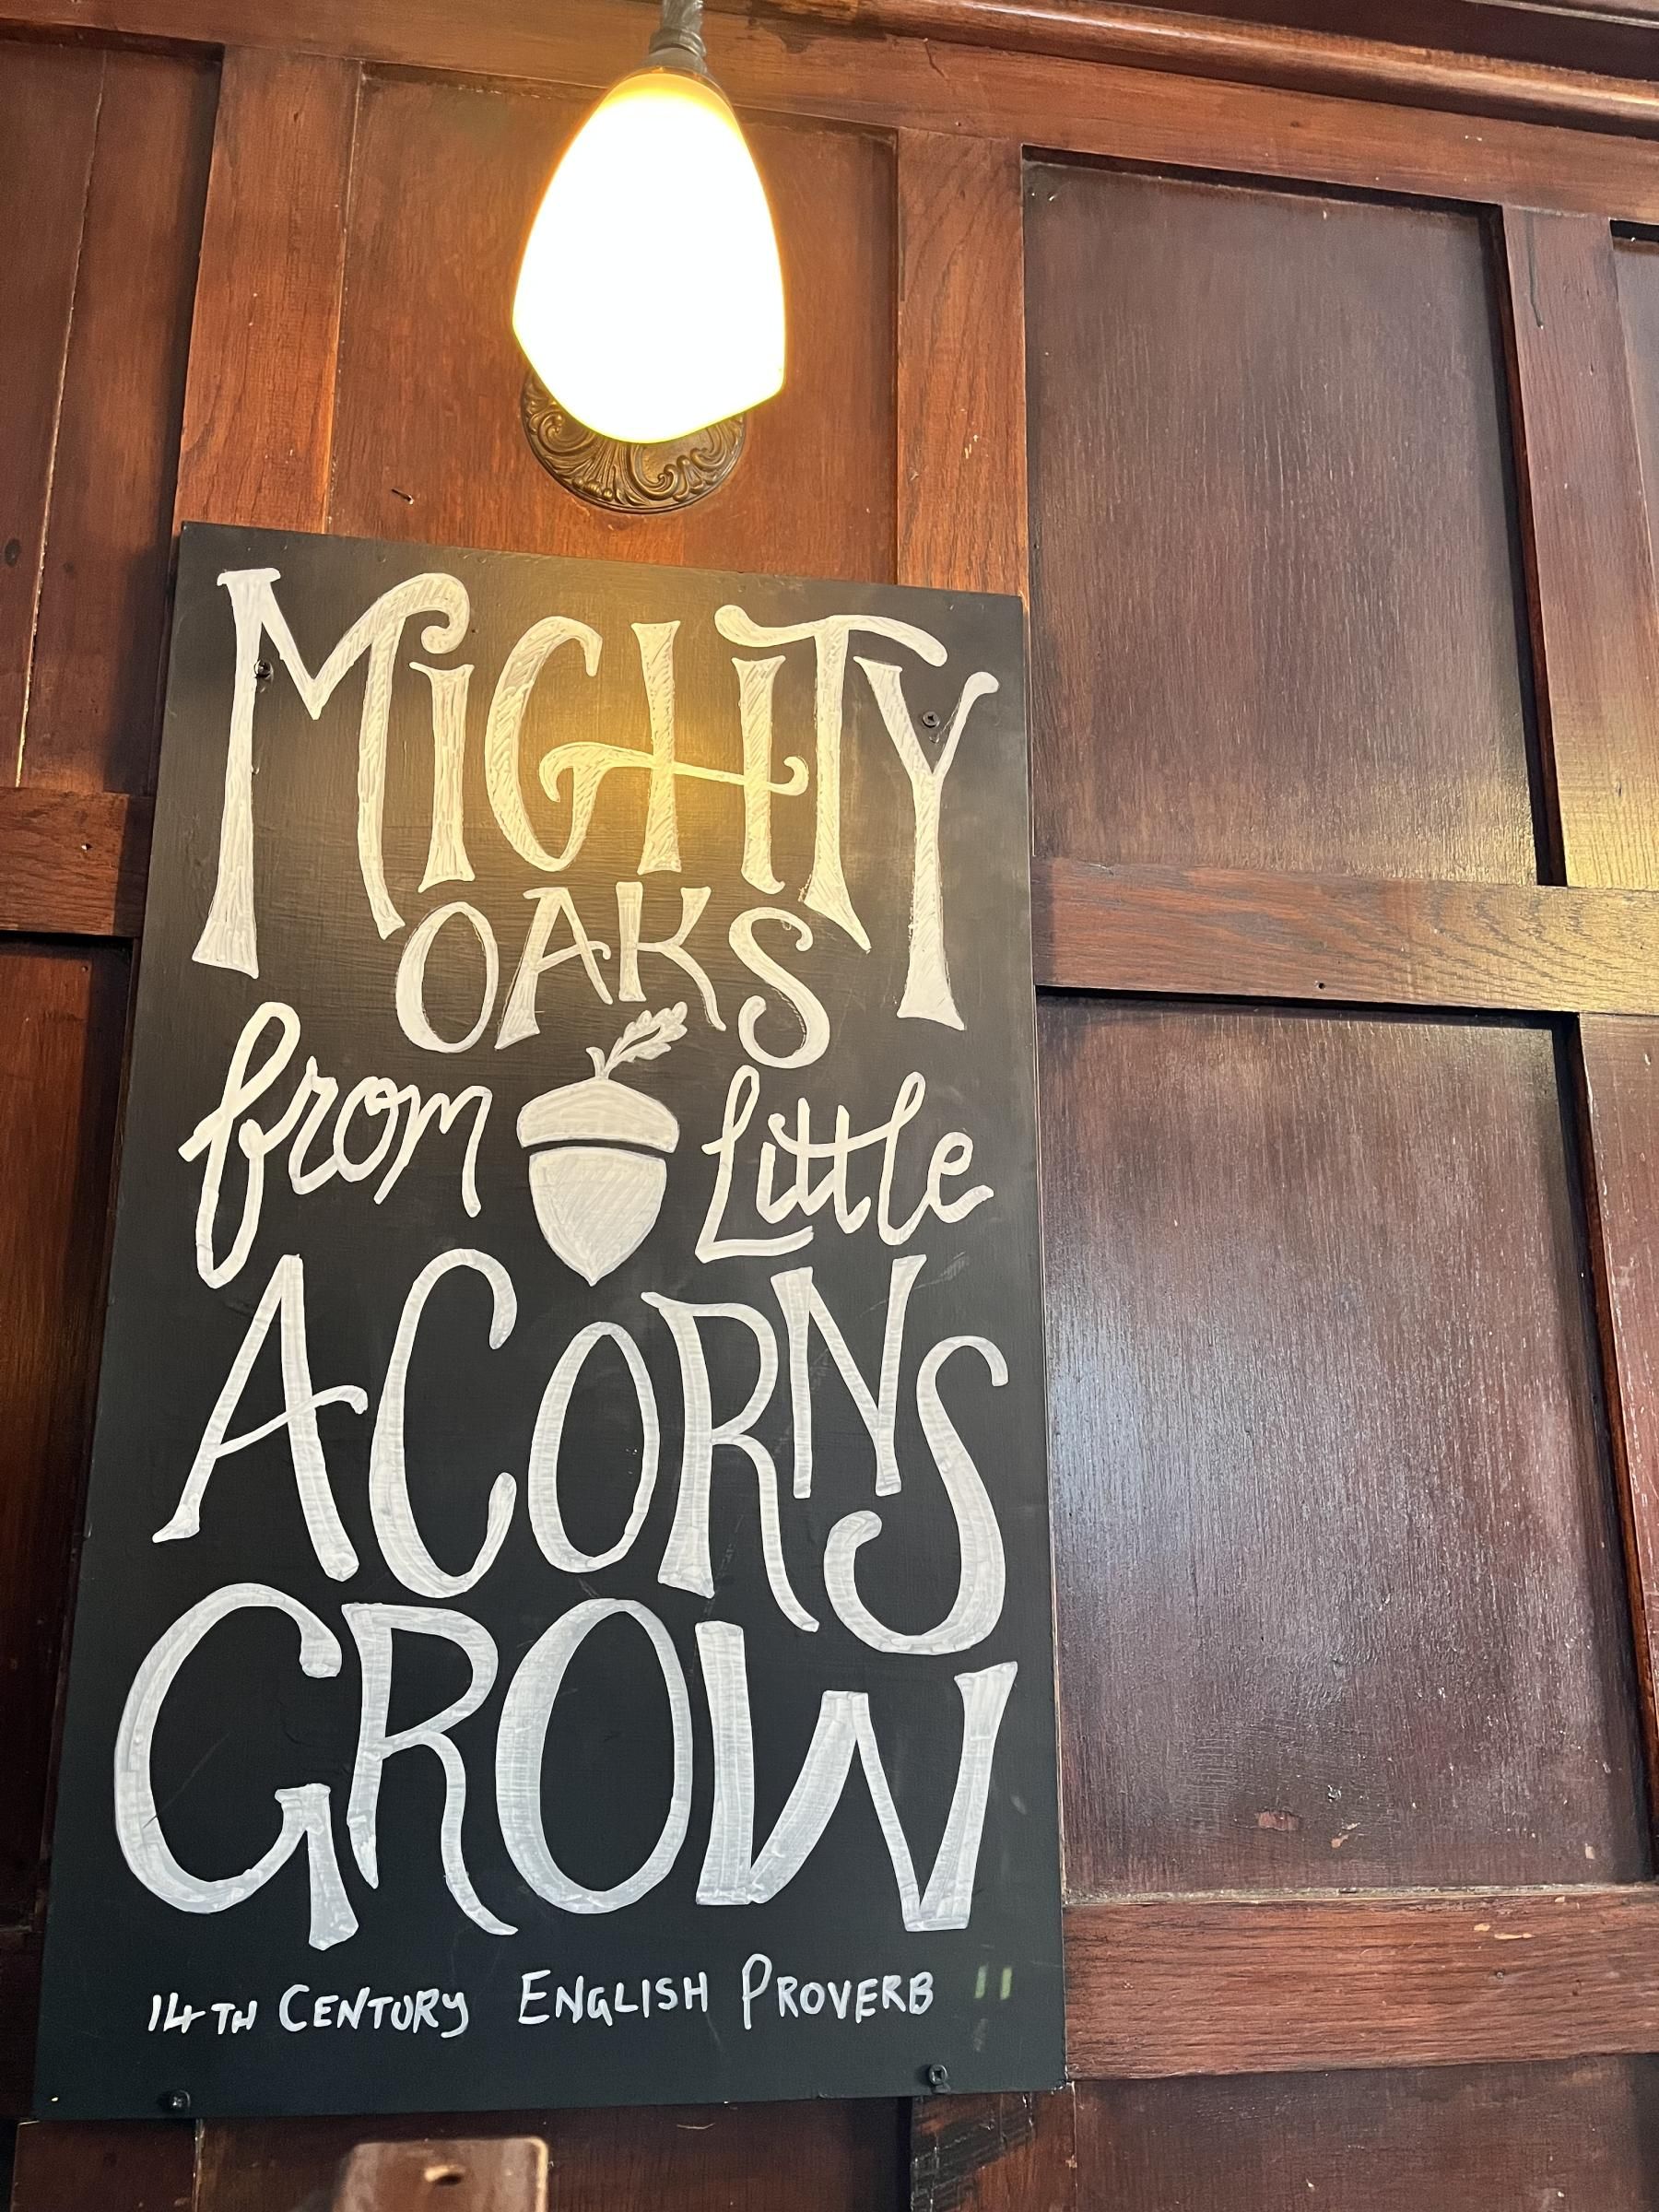 MiGHTY
OAKS
from Little
ACORNS
GROW
14TH CENTURY ENGLISH PROVERB